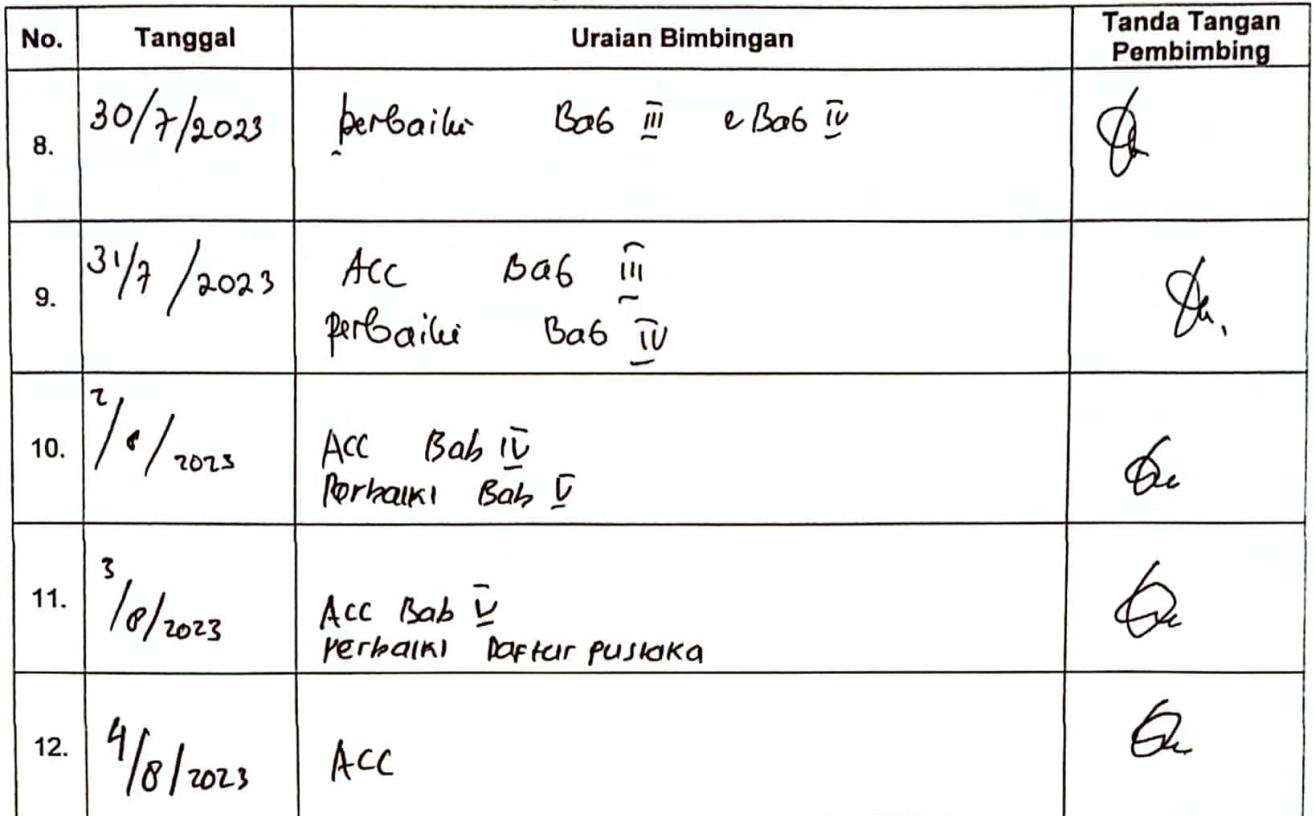 No. Tanggal Uraian Bimbingan Tanda Tangan Pembimbing
8. 30/7/2023 perbaiki Bab III & Bab IV
9. 31/7/2023 ACC Bab III
perbaiki Bab IV
10. 2/8/2023 ACC Bab IV
Perbaiki Bab V
11. 3/8/2023 Acc Bab V
Perbaiki Daftar pustaka
12. 4/8/2023 ACC